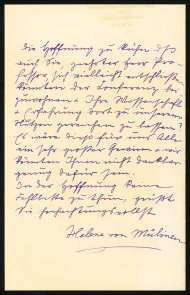 die Hoffnung zu kühn daß
auch Sie, geehrter Herr Pro-
fessor, sich vielleicht entschließen
könnten der Conferenz bei-
zuwohnen & Ihre Wissenschaft
& Erfahrung dort zu unserem
Nutzen gereichen zu lassen?
Es wäre dieß für uns Alle
ein sehr großer Gewinn & wir
könnten Ihnen nicht dankbar
genug dafür sein.
In der Hoffnung keine
Fehlbitte zu thun, grüßt
Sie hochachtungsvollst
Helene von Mülinen